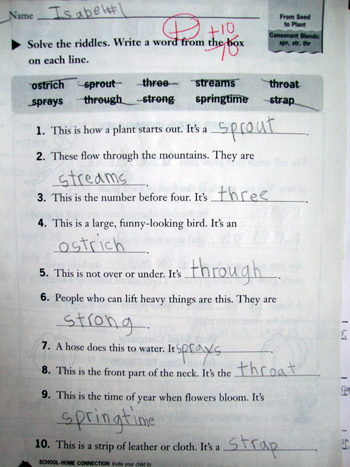 Name Isabel#1
+10
/10
From Seed
to Plant
Consonant Blends:
spr, str, thr
Solve the riddles. Write a word from the box
on each line.
ostrich sprout three streams throat
sprays through strong springtime strap
1. This is how a plant starts out. It's a sprout.
2. These flow through the mountains. They are
streams.
3. This is the number before four. It's three.
4. This is a large, funny-looking bird. It's an
ostrich.
5. This is not over or under. It's through.
6. People who can lift heavy things are this. They are
strong.
7. A hose does this to water. It sprays.
8. This is the front part of the neck. It's the throat.
9. This is the time of year when flowers bloom. It's
springtime.
10. This is a strip of leather or cloth. It's a strap.
SCHOOL-HOME CONNECTION Invite your child to